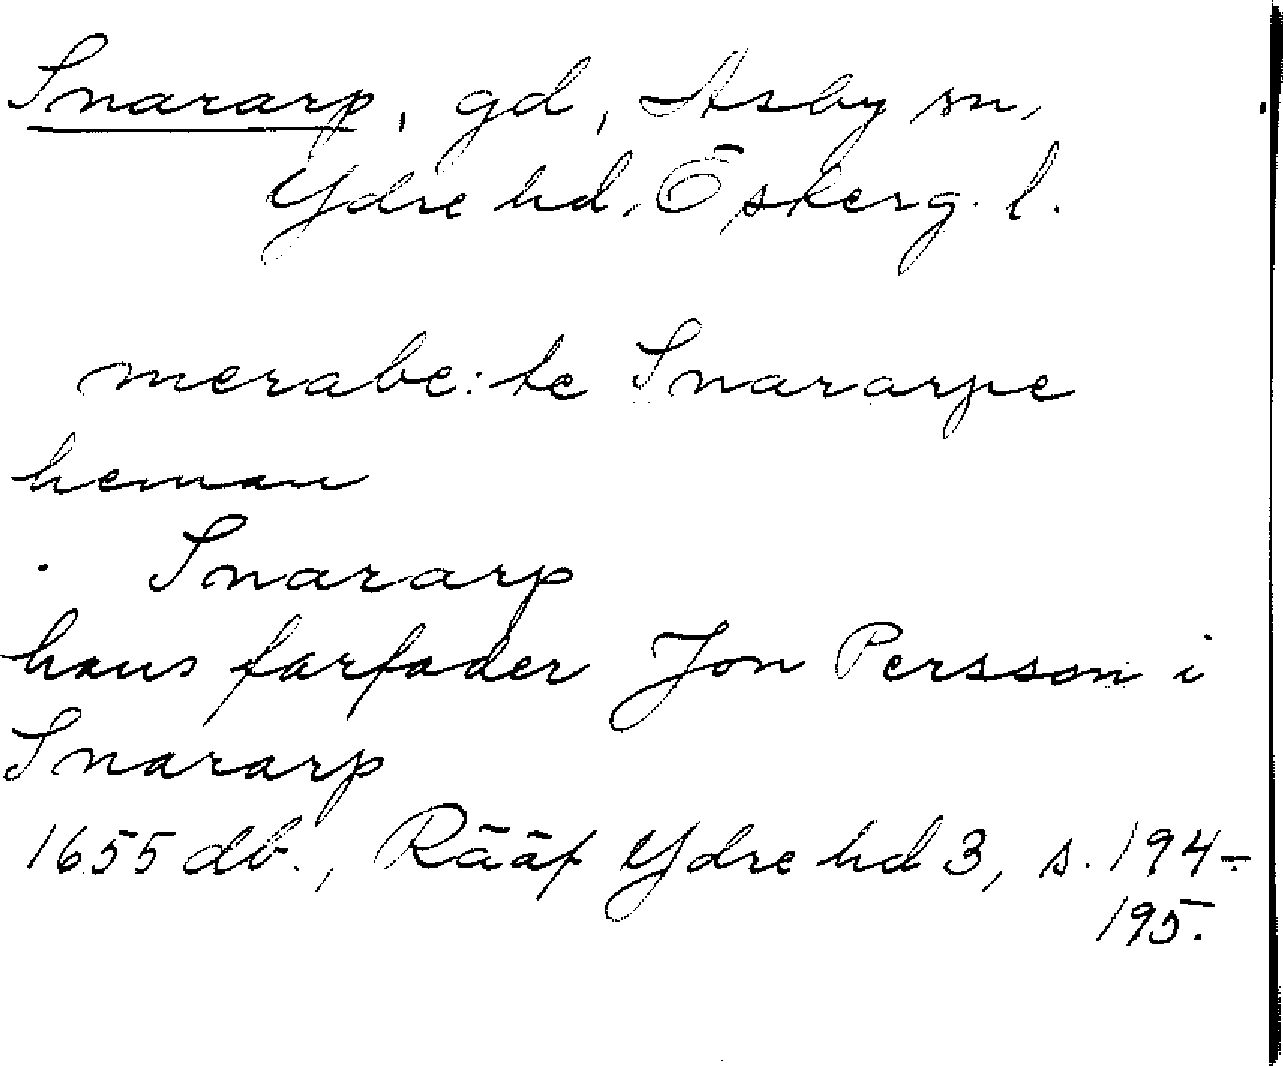 Snararp, gd, Asby sn,
Ydre hd, Österg. l.
merabe:te Snararpe
heman
Snararp
hans farfader Jon Persson i
Snararp
1655 db., Rääf Ydre hd 3, s. 194-
195.